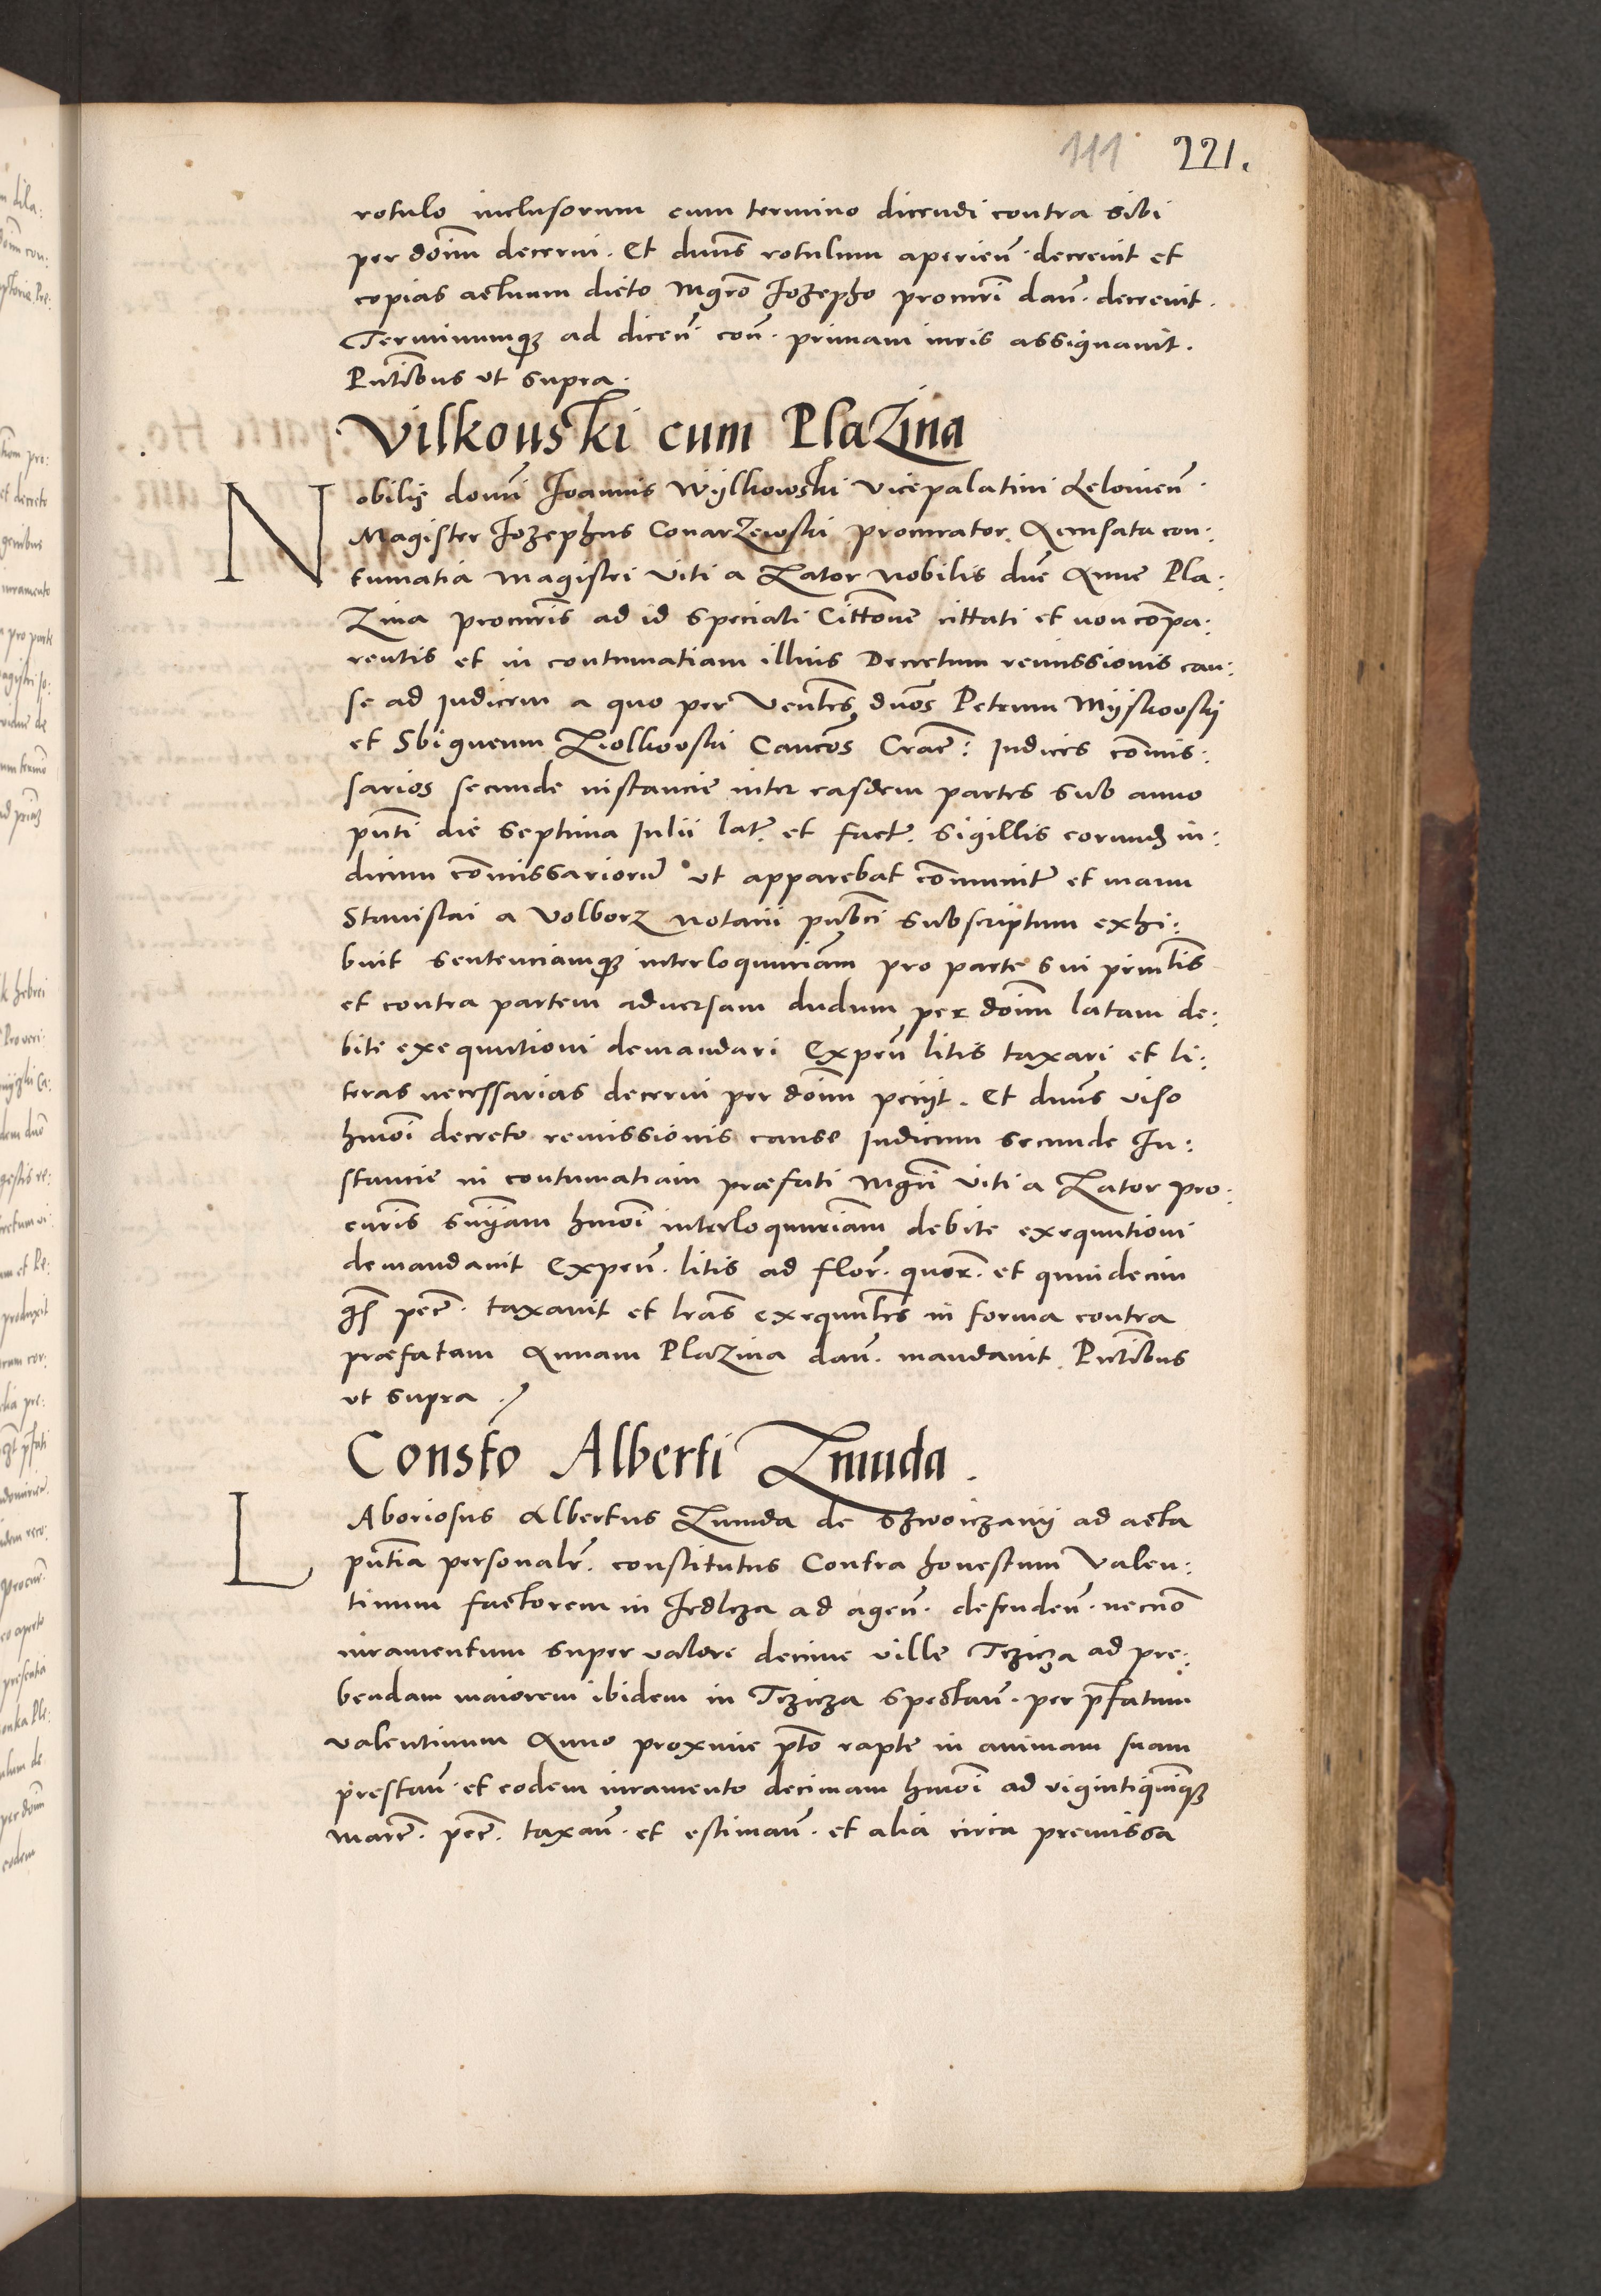 111 221.
rotulo inclusorum cum termino dicendi contra sibi
per doīm decerni. Et dnūs rotulum aperień. decrevit et
copias actuum dicto Mgrō Jozepho procurī dań. decrevit.
Terminumqȝ ad diceń coń. primam iuris assignavit.
Pn̄tibus ut supra.
Vilkouski cum Plazina
Nobilis domī Joannis Wÿlkowski Vicepalatini Lelovień.
Magister Jozephus Conarzewski procurator Accusata con:
tumatia Magistri Viti a Zator nobilis dnē Anne Pla:
Zina procurīs ad id speciali Cittōne cittati et non cōmpa:
rentis et in contumatiam illius Decretum remissionis cau:
se ad Iudicem a quo per Ven̄les dnōs Petrum Mÿskovskÿ
et Sbigneum Ziolkovski Canc̄os Crac̄: Iudices commis:
sarios secunde instancie inter easdem partes sub anno
pn̄ti die septima Iulii lat̄. et fact̄. sigillis eorundȝ iu:
dicum commissariorū ut apparebat commūnit̄ et manu
Stanislai a Volborz notarii publ̄ci subscriptum exhi:
buit sentenciamqȝ interloquutriam pro parte sui prin̄lis
et contra partem adversam dudum per doīm latam de:
bite exequutioni demandari Expeń litis taxari et li:
teras necessarias decerni per doīm peciit. Et dnūs viso
hmōi decreto remissionis cause Iudicum secunde In:
stancie in contumatiam præfati Mgrī Viti a Zator pro:
curīs sn̄iam hmōi interloquutriam debite exequutioni
demandavit Expeń. litis ad flor̄. quor̄. et quindecim
gs̄ pec̄. taxavit et lrās exequutles in forma contra
præfatam Annam Plazina dań. mandavit. Pn̄tibus
ut supra.
Constō Alberti Zmuda.
LAboriosus Albertus Zmuda de Szwoiczanÿ ad acta
pn̄tia personalr̄. constitutus Contra honestum Valen:
tinum factorem in Jedlcza ad ageń. defendeń. necnō
iuramentum super valore decime ville Trzicza ad pre:
bendam maiorem ibidem in Trzicza spectań. per p̄fatum
Valentinum Anno proxime pt̄o rapte in animam suam
prestań. et eodem iuramento decimam hmōi ad vigintiquinqȝ
marc̄. pec̄. taxań. et estimań. et alia circa premissa